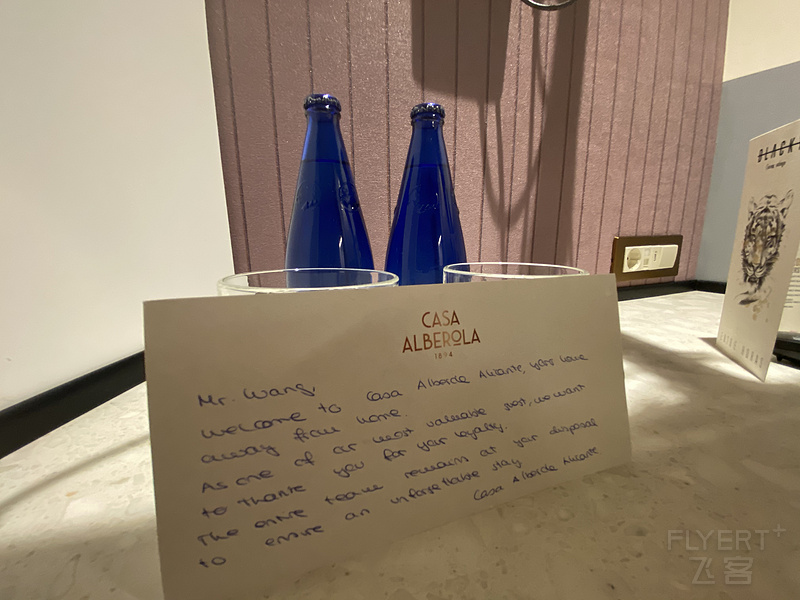 CASA
ALBEROLA
1894
Mr. Wang,
Welcome to Casa Alberola Alicante, your home
away from home.
As one of our most valuable guest, we want
to thank you for your loyalty.
The entire team remains at your disposal
to ensure an unforgettable stay
Casa Alberola Alicante
BLACK
FLYERT+
飞客